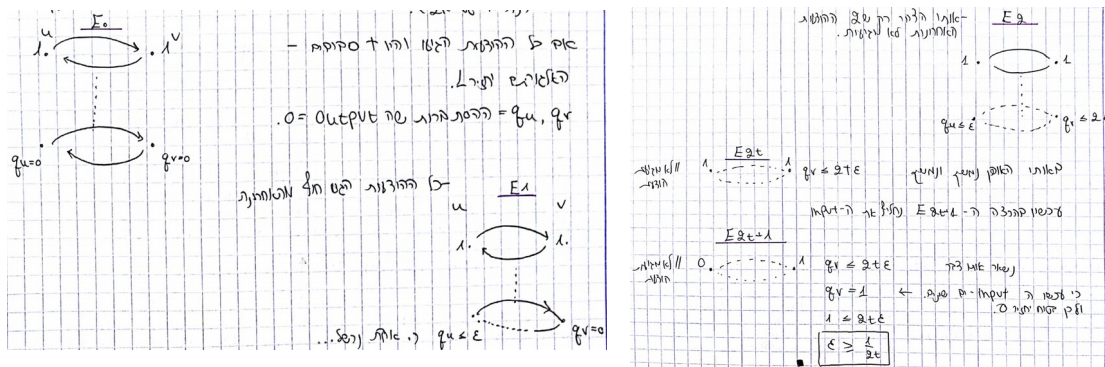 E0
u
v
1
1
qu=0
qv=0
אם כל ההודעות הגיעו והיו + סבובים –
האלגוריתם יחזיר 1.
qu, qv = ההסתברות שה Output =0.
E1
כל ההודעות הגיעו חוץ מהאחרונה
u
v
1
1
qu ≤ ε
qv=0
E2
אותו הדבר רק ש2 ההודעות
האחרונות לא מגיעות.
1
1
qu ≤ ε
qv ≤ 2
E2t
1
1
qv ≤ 2tε
באותו האופן נמשיך ונמשיך
עכשיו בהרצה ה- E2t+1 נחליף את ה-input
E2t+1
0
1
qv ≤ 2tε
נשאר אותו דבר
qv = 1 ← כי עכשיו ה input-ים שונים.
ולכן יחזיר 0.
1 ≤ 2tε
ε ≥ 1/2t